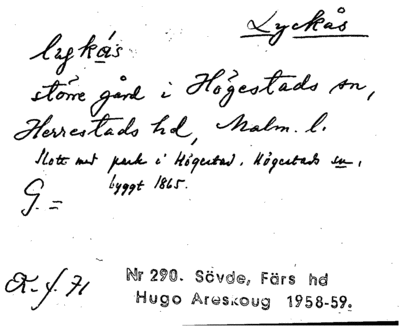 Lyckås
lyckås
större gård i Högestads sn,
Herrestads hd, Malm. l.
Slott med park i Högestad, Högestads sn,
byggt 1865.
G. =
Nr 290. Sövde, Färs hd
Hugo Areskoug 1958-59.